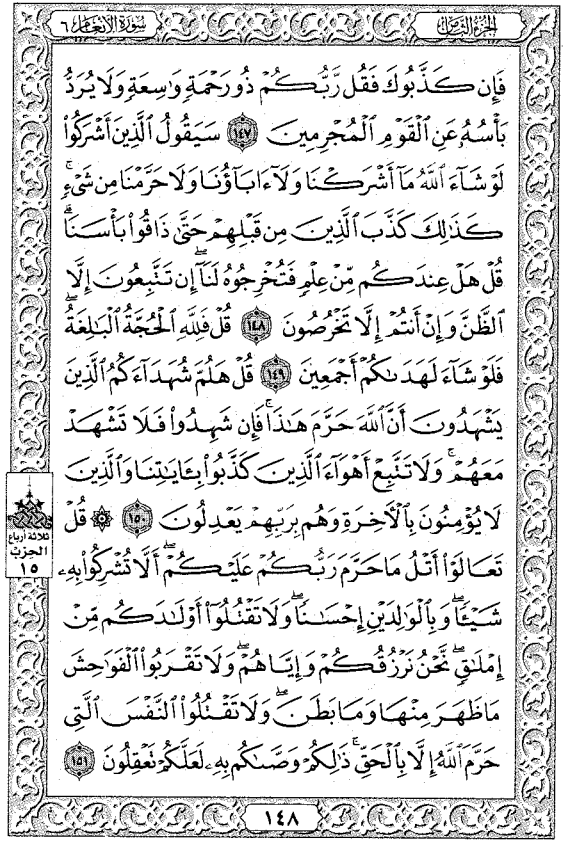 الجزء الثامن
سورة الأنعام ٦
فَإِن كَذَّبُوكَ فَقُل رَّبُّكُمْ ذُو رَحْمَةٍ وَاسِعَةٍ وَلَا يُرَدُّ
بَأْسُهُۥ عَنِ ٱلْقَوْمِ ٱلْمُجْرِمِينَ ١٤٧ سَيَقُولُ ٱلَّذِينَ أَشْرَكُوا۟
لَوْ شَآءَ ٱللَّهُ مَآ أَشْرَكْنَا وَلَآ ءَابَآؤُنَا وَلَا حَرَّمْنَا مِن شَىْءٍ ۚ
كَذَٰلِكَ كَذَّبَ ٱلَّذِينَ مِن قَبْلِهِمْ حَتَّىٰ ذَاقُوا۟ بَأْسَنَا ۗ
قُلْ هَلْ عِندَكُم مِّنْ عِلْمٍ فَتُخْرِجُوهُ لَنَآ ۖ إِن تَتَّبِعُونَ إِلَّا
ٱلظَّنَّ وَإِنْ أَنتُمْ إِلَّا تَخْرُصُونَ ١٤٨ قُلْ فَلِلَّهِ ٱلْحُجَّةُ ٱلْبَٰلِغَةُ ۖ
فَلَوْ شَآءَ لَهَدَىٰكُمْ أَجْمَعِينَ ١٤٩ قُلْ هَلُمَّ شُهَدَآءَكُمُ ٱلَّذِينَ
يَشْهَدُونَ أَنَّ ٱللَّهَ حَرَّمَ هَٰذَا ۖ فَإِن شَهِدُوا۟ فَلَا تَشْهَدْ
مَعَهُمْ ۚ وَلَا تَتَّبِعْ أَهْوَآءَ ٱلَّذِينَ كَذَّبُوا۟ بِـَٔايَٰتِنَا وَٱلَّذِينَ
لَا يُؤْمِنُونَ بِٱلْـَٔاخِرَةِ وَهُم بِرَبِّهِمْ يَعْدِلُونَ ١٥٠ ۞ قُلْ
تَعَالَوْا۟ أَتْلُ مَا حَرَّمَ رَبُّكُمْ عَلَيْكُمْ ۖ أَلَّا تُشْرِكُوا۟ بِهِۦ
شَيْـًٔا ۖ وَبِٱلْوَٰلِدَيْنِ إِحْسَٰنًا ۖ وَلَا تَقْتُلُوٓا۟ أَوْلَٰدَكُم مِّنْ
إِمْلَٰقٍ ۖ نَّحْنُ نَرْزُقُكُمْ وَإِيَّاهُمْ ۖ وَلَا تَقْرَبُوا۟ ٱلْفَوَٰحِشَ
مَا ظَهَرَ مِنْهَا وَمَا بَطَنَ ۖ وَلَا تَقْتُلُوا۟ ٱلنَّفْسَ ٱلَّتِى
حَرَّمَ ٱللَّهُ إِلَّا بِٱلْحَقِّ ۚ ذَٰلِكُمْ وَصَّىٰكُم بِهِۦ لَعَلَّكُمْ تَعْقِلُونَ ١٥١
ثلاثة أرباع
الحزب
١٥
١٤٨